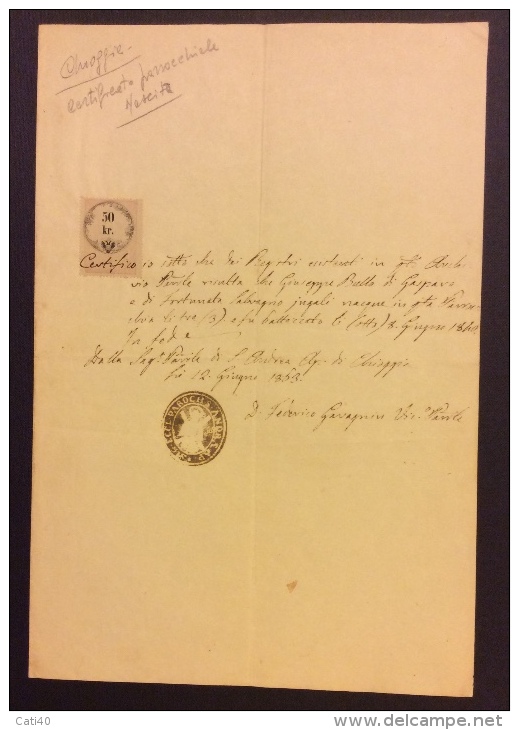 Chioggia
certificato parrocchiale
Nascita
50
kr.
Certifico io sotto che dai Registri esistenti in qto Archi-
vio Parrle risulta che Giuseppe Ballo di Gasparo
e di Fortunata Salvagno jugali nacque in qta Parro-
li tre (3) e fu battezzato li (otto) 8. Giugno
In fede
Dalla Parrle di S. Andrea Ap. di Chioggia
li 12. Giugno
D. Federico Vic. Parrle
Cati40
© delcampe.net